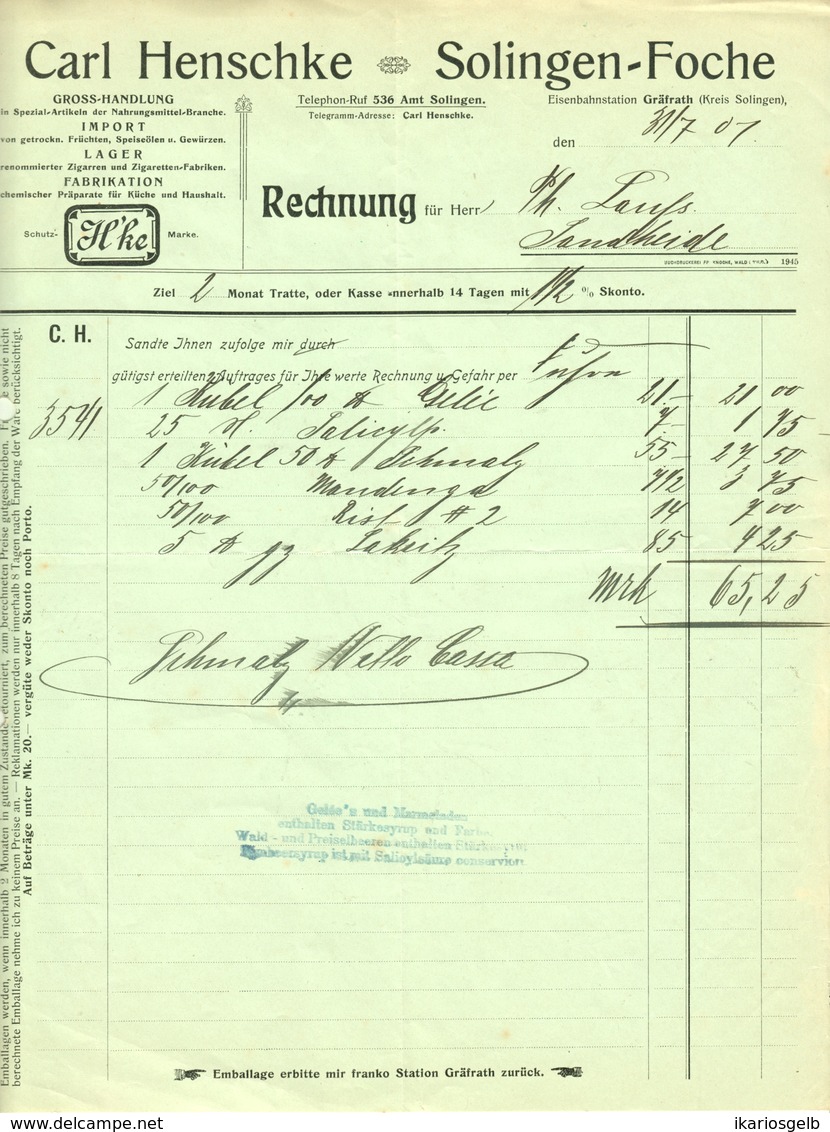 Carl Henschke Solingen-Foche
GROSS-HANDLUNG
in Spezial-Artikeln der Nahrungsmittel-Branche.
IMPORT
von getrockn. Früchten, Speiseölen u. Gewürzen.
LAGER
renommierter Zigarren und Zigaretten-Fabriken.
FABRIKATION
chemischer Präparate für Küche und Haushalt.
Schutz- H'ke Marke.
Telephon-Ruf 536 Amt Solingen.
Telegramm-Adresse: Carl Henschke.
Eisenbahnstation Gräfrath (Kreis Solingen),
den 31/7 07
Rechnung für Herr Ph.
Sandheide
1945
Ziel 2 Monat Tratte, oder Kasse innerhalb 14 Tagen mit 1 1/2 % Skonto.
C. H.
Sandte Ihnen zufolge mir durch
gütigst erteilten Auftrages für Ihre werte Rechnung u. Gefahr per Fuhre
1 Kübel 100 ℔ Gelée 21.– 21 00
3541 25 Salicylp. 7.– 1 75
1 Kübel 50 ℔ Schmalz 55 – 27 50
50/100 Mandenga 7 1/2 3 75
50/100 Rist # 2 14 7 00
5 ℔ gz Lakritz 85 4 25
Mrk 65,25
Schmalz Netto Cassa
Gelée's und Marmeladen
enthalten Stärkesyrup und Farbe.
Wald- und Preiselbeeren enthalten Stärkesyrup
Himbeersyrup ist mit Salicylsäure conserviert.
Emballage erbitte mir franko Station Gräfrath zurück.
Emballagen werden, wenn innerhalb 2 Monaten in gutem Zustande retourniert, zum berechneten Preise gutgeschrieben. sowie nicht
berechnete Emballage nehme ich zu keinem Preise an. — Reklamationen werden nur innerhalb 8 Tagen nach Empfang der Ware berücksichtigt.
Auf Beträge unter Mk. 20.— vergüte weder Skonto noch Porto.
www.delcampe.net
ikariosgelb